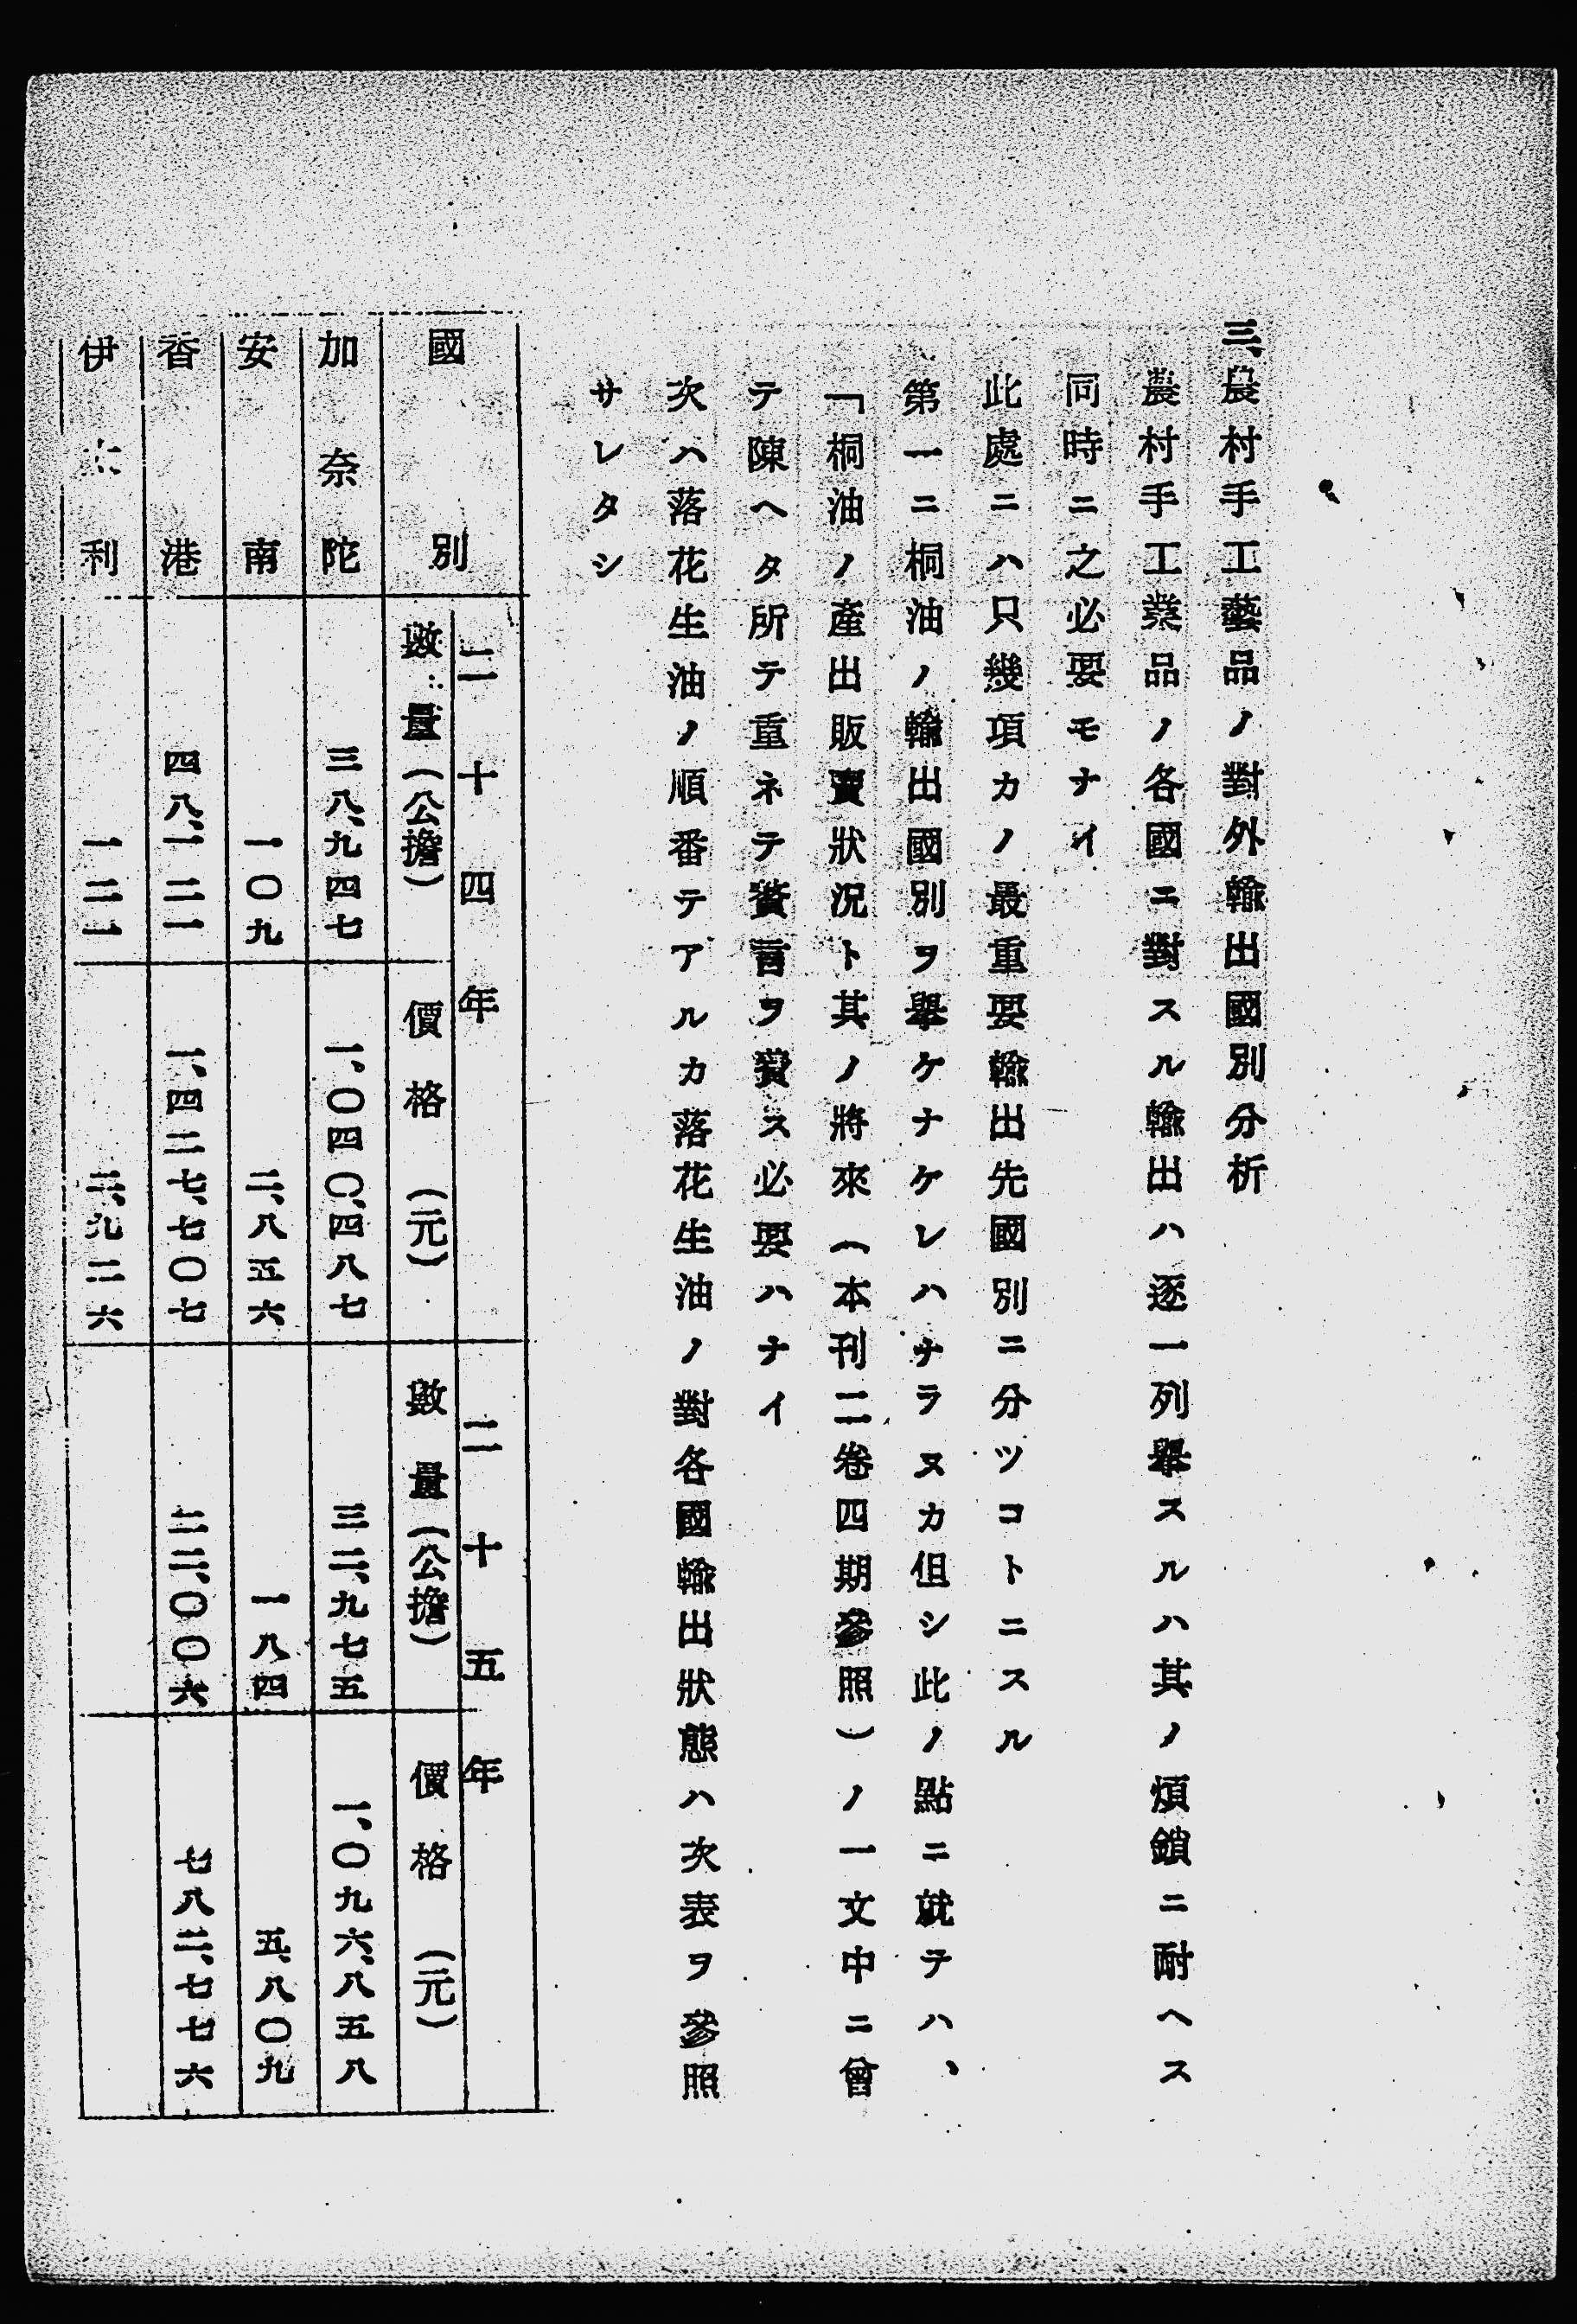 三、農村手工藝品ノ對外輸出國別分析
農村手工業品ノ各國ニ對スル輸出ハ逐一列擧スルハ其ノ煩鎖ニ耐ヘス
同時ニ之必要モナイ
此處ニハ只幾項カノ最重要輸出先國別ニ分ツコトニスル
第一ニ桐油ノ輸出國別ヲ擧ケナケレハナラヌカ但シ此ノ點ニ就テハ、
「桐油ノ產出販賣狀況ト其ノ將來（本刊二卷四期參照）ノ一文中ニ曾
テ陳ヘタ所テ重ネテ贅言ヲ費ス必要ハナイ
次ハ落花生油ノ順番テアルカ落花生油ノ對各國輸出狀態ハ次表ヲ參照
サレタシ
國別
二十四年 二十五年
數量（公擔） 價格（元） 數量（公擔） 價格（元）
加奈陀 三八、九四七 一、〇四〇、四八七 三二、九七五 一、〇九六、八五八
安南 一〇九 二、八五六 一八四 五、八〇九
香港 四八、一二一 一、四二七、七〇七 二二、〇〇六 七八二、七七六
伊 利 一二一 二、九二六